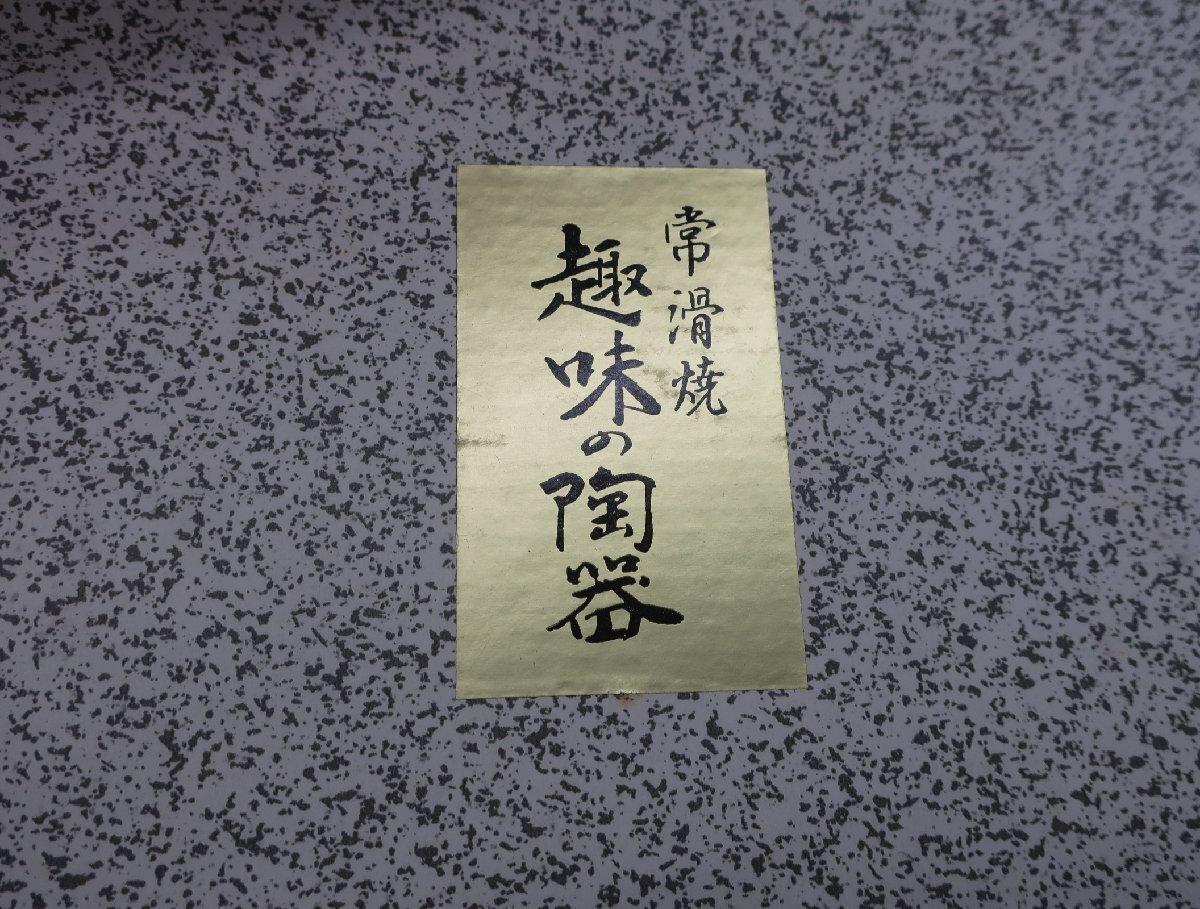 常滑焼
趣味の陶器